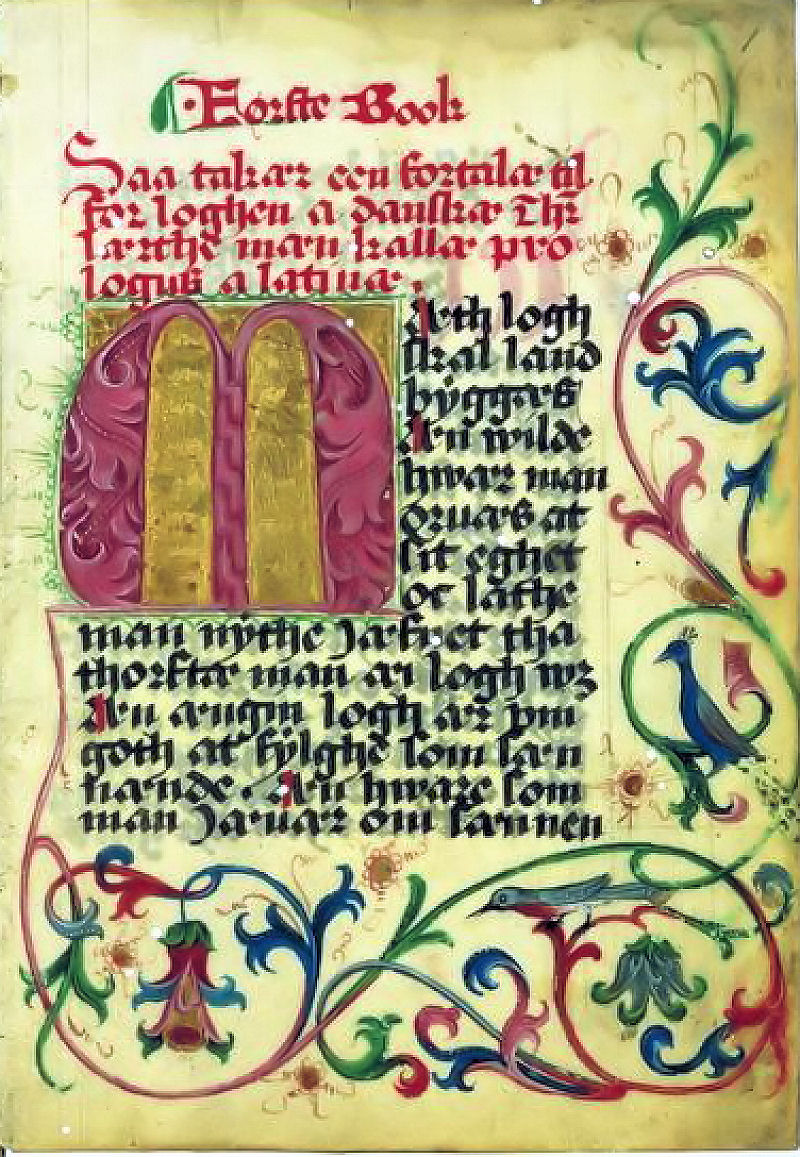 Forste Book
Saa takær een fortalæ til
for loghen a danskæ Thz
lærthe mæn kallæ pro
logus a latinæ.
Mæth logh
skal land
byggæs
Æn wilde
hwar man
øruæs at
sit eghet
oc lathe
mæn nythe Jæfnet tha
thorftæ man æi logh wz
Æn ængin logh ær ym
goth at fylghe som san
nande. Æn hware som
man Jæuær om sannen